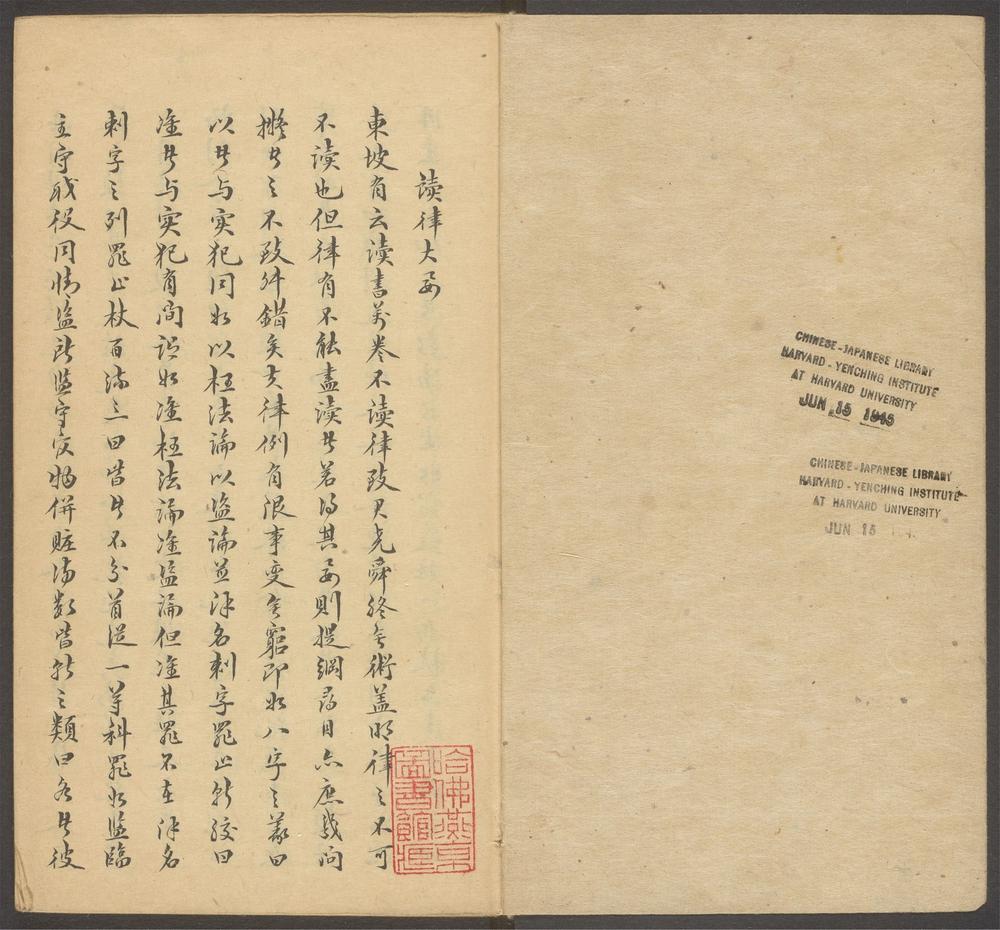 讀律大要
東坡有云讀書萬卷不讀律致君堯舜終无術盖明律之不可
不讀也但律有不能盡讀者若得其要則提綱尋目亦庶幾问
擬者之不致舛錯矣夫律例有限事变无窮即如八字之義曰
以者与实犯同如以枉法論以盜論並除名刺字罪止斬绞曰
准者与实犯有间谓如准枉法論准盜論但准其罪不在除名
刺字之列罪止杖百流三曰皆者不分首從一等科罪如监臨
主守職役同情盜所监守官物併賍滿数皆斬之類曰各者彼
哈佛燕京
圖書館
CHINESE-JAPANESE LIBRARY
HARVARD-YENCHING INSTITUTE
AT HARVARD UNIVERSITY
JUN 15 1945
CHINESE-JAPANESE LIBRARY
HARVARD-YENCHING INSTITUTE
AT HARVARD UNIVERSITY
JUN 15